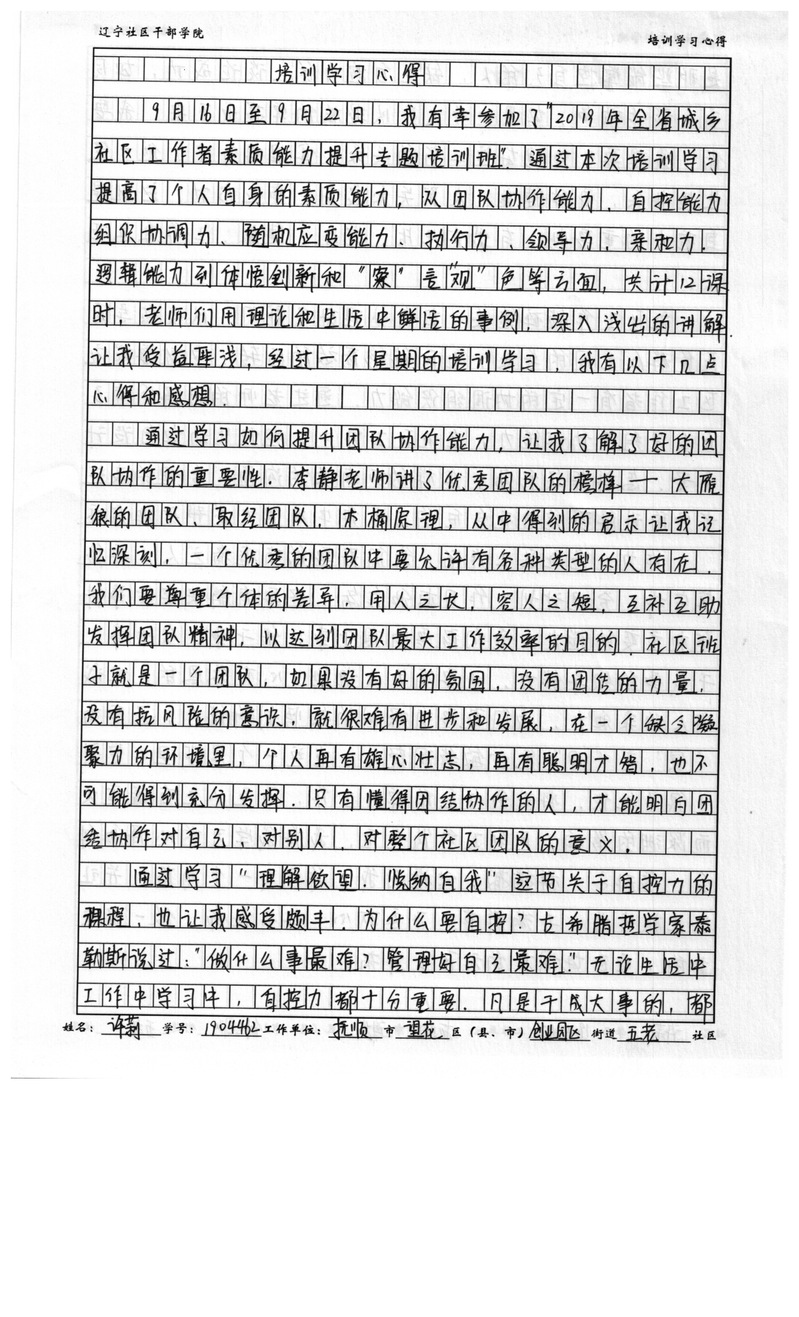 辽宁社区干部学院
培训学习心得
培训学习心得
9月16日至9月22日，我有幸参加了"2019年全省城乡
社区工作者素质能力提升专题培训班"。通过本次培训学习
提高了个人自身的素质能力，从团队协作能力、自控能力
组织协调力、随机应变能力、执行力、领导力，亲和力，
逻辑能力到体悟创新和"察"言"观"色等方面，共计12课
时，老师们用理论和生活中鲜活的事例，深入浅出的讲解
让我受益匪浅，经过一个星期的培训学习，我有以下几点
心得和感想.
通过学习如何提升团队协作能力，让我了解了好的团
队协作的重要性.李静老师讲了优秀团队的榜样——大雁
狼的团队、取经团队，木桶原理，从中得到的启示让我记
忆深刻，一个优秀的团队中要允许有各种类型的人存在，
我们要尊重个体的差异，用人之长，容人之短，互补互助
发挥团队精神，以达到团队最大工作效率的目的.社区班
子就是一个团队，如果没有好的氛围，没有团结的力量，
没有抗风险的意识，就很难有进步和发展，在一个缺乏凝
聚力的环境里，个人再有雄心壮志，再有聪明才智，也不
可能得到充分发挥.只有懂得团结协作的人，才能明白团
结协作对自己、对别人、对整个社区团队的意义.
通过学习"理解欲望，悦纳自我"这节关于自控力的
课程，也让我感受颇丰，为什么要自控?古希腊哲学家泰
勒斯说过："做什么事最难?管理好自己最难."无论生活中
工作中学习中，自控力都十分重要.凡是干成大事的，都
姓名：许莉 学号：1904462 工作单位：抚顺 市 望花 区（县、市）创业园区 街道 五老 社区